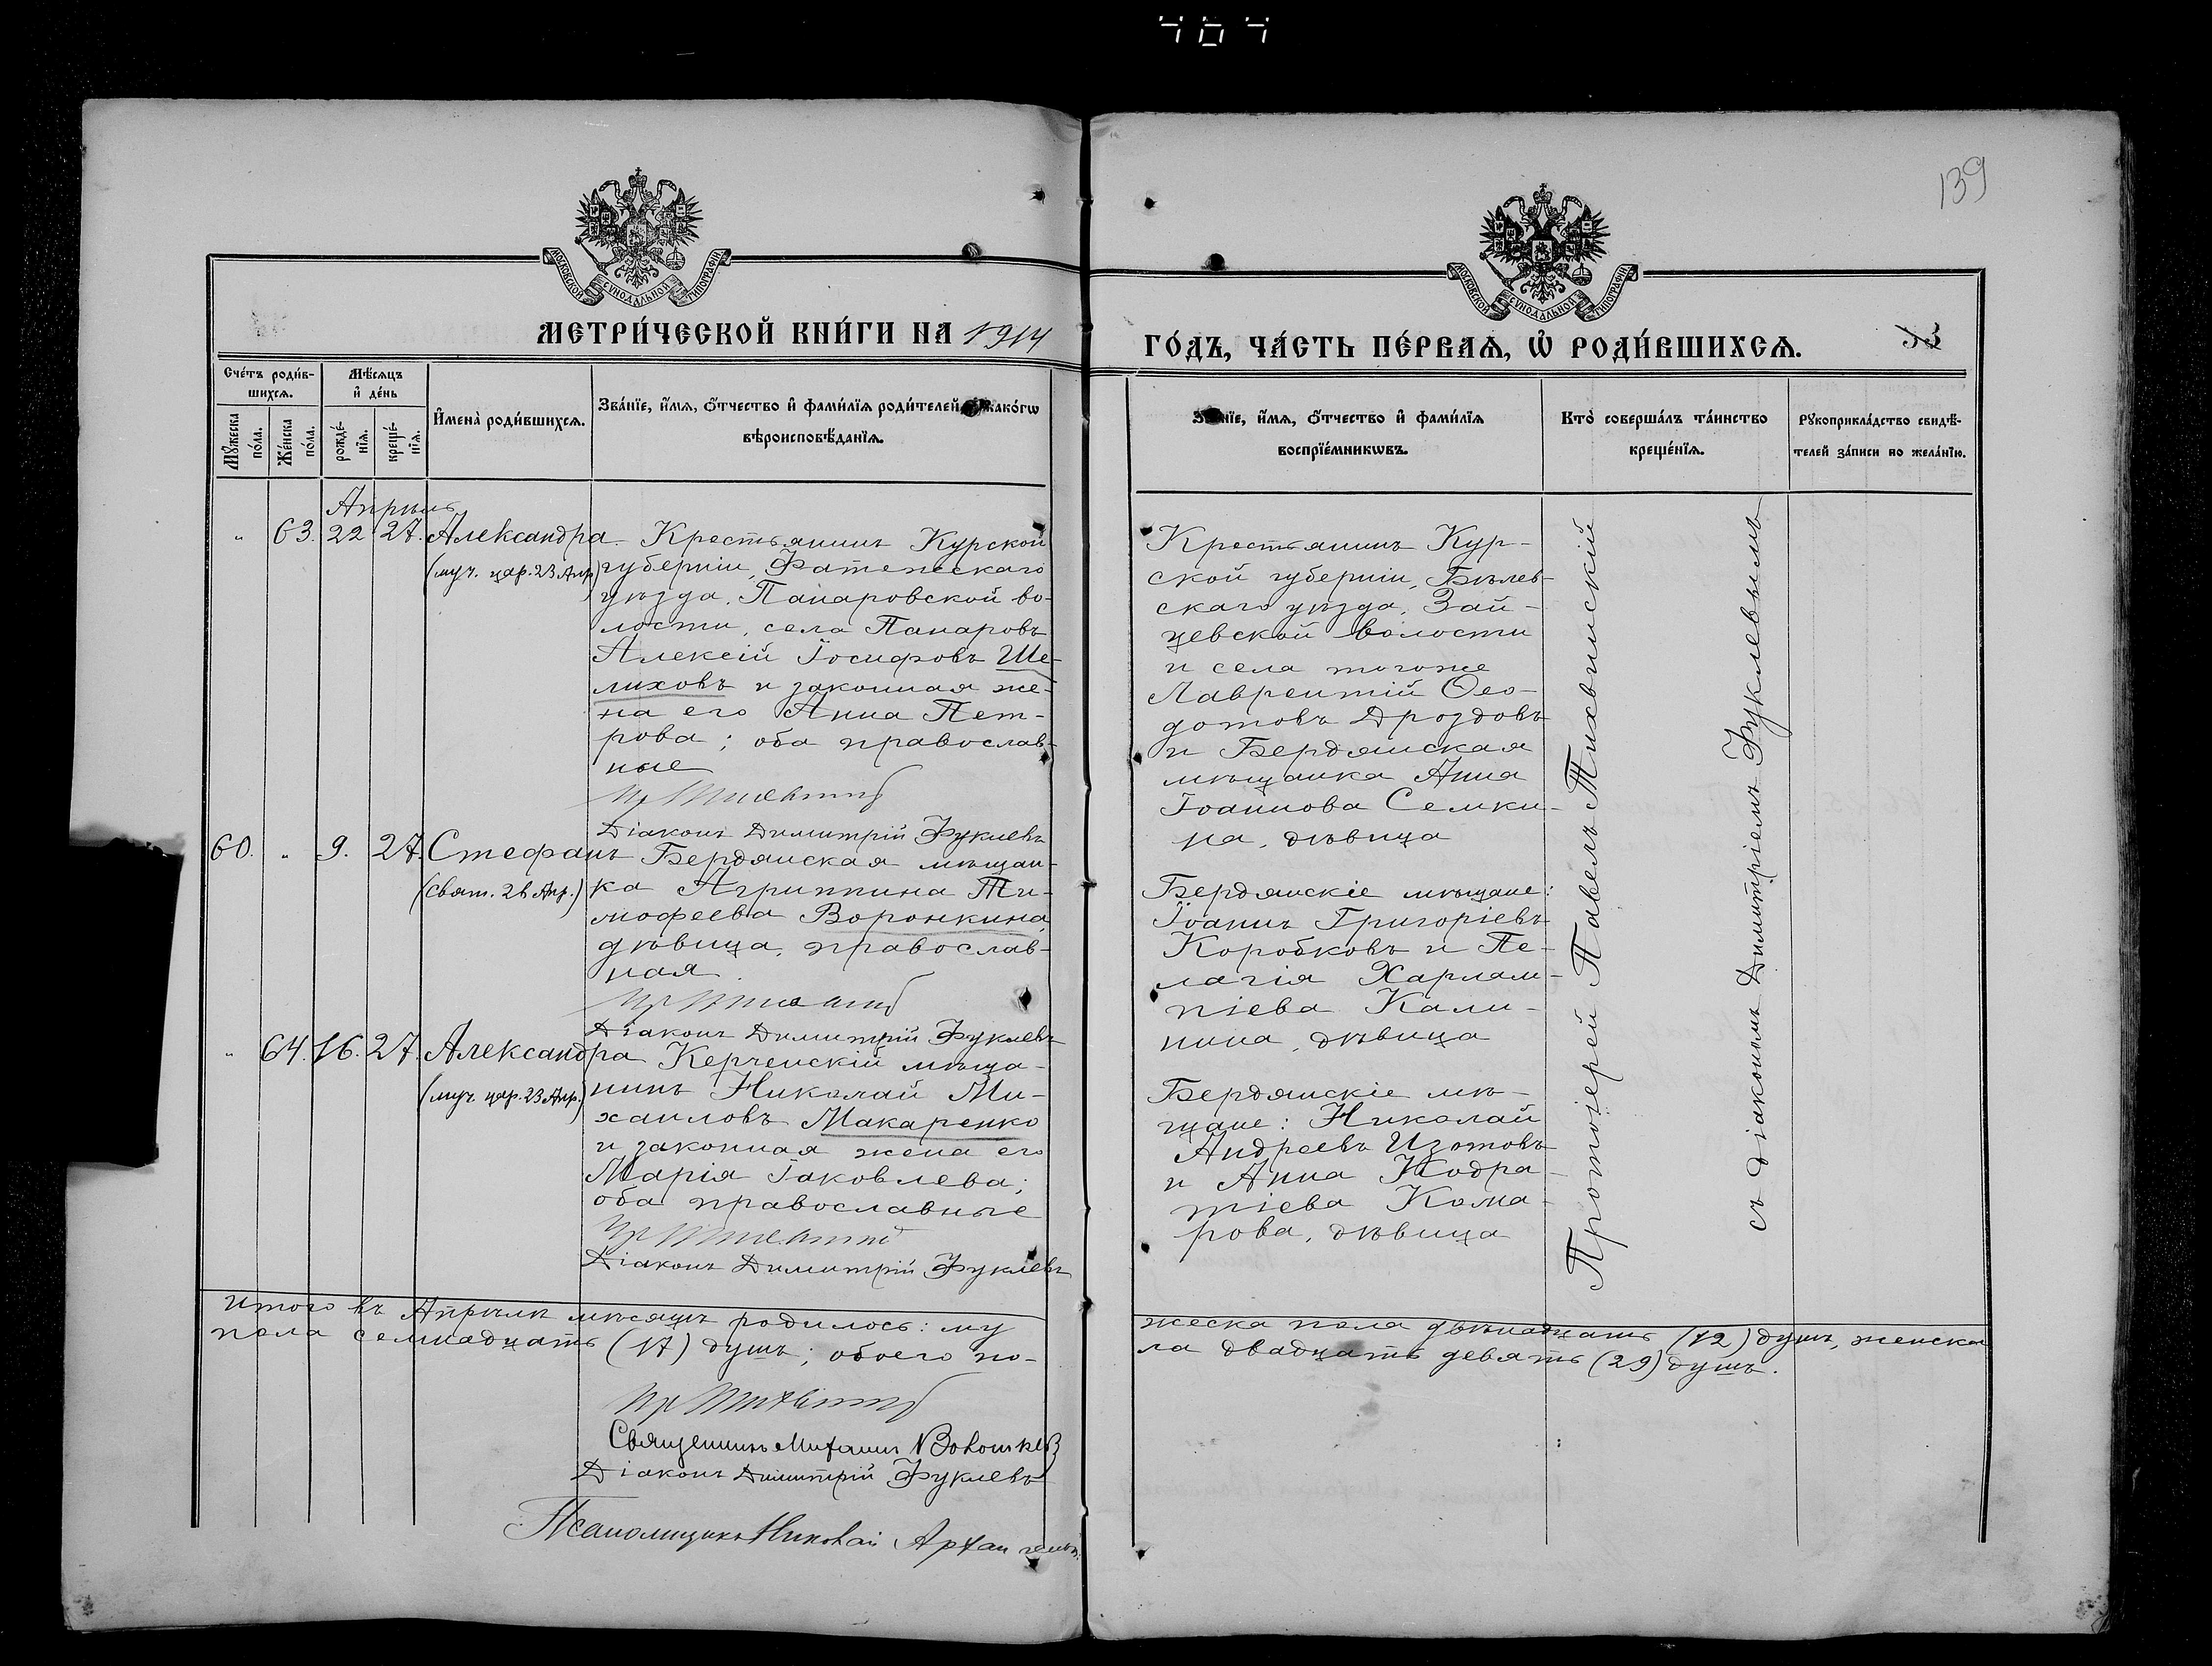 139
МОСКОВСКОЙ СУНОДАЛЬНОЙ ТИПОГРАФІИ
МОСКОВСКОЙ СУНОДАЛЬНОЙ ТИПОГРАФІИ
МЕТРИ́ЧЕСКОЙ КНИ́ГИ НА 1914
ГО́ДЪ, ЧА́СТЬ ПЕ́РВАѦ, Ѡ҆ РОДИ́ВШИХСѦ.
53
Сче́тъ роди́в-
шихсѧ.
Мѣ́сѧцъ
и҆ де́нь
Мꙋ́жеска
по́ла.
Же́нска
по́ла.
рожде́-
нїѧ.
креще́-
нїѧ.
И҆мена̀ роди́вшихсѧ.
Зва́нїе, и҆́мѧ, ѻ҆́тчество и҆ фами́лїѧ роди́телей како́гѡ
вѣроисповѣ́данїѧ.
и҆́мѧ, ѻ҆́тчество и҆ фами́лїѧ
воспрїе́мникѡвъ.
Кто̀ соверша́лъ та́инство
креще́нїѧ.
Рꙋкоприкла́дство свидѣ́-
телей за́писи по жела́нїю.
Апрѣль
" 63. 22 27. Александра
(муч. цар. 23 Апр)
Крестьянинъ Курской
губерніи, Фатежскаго
уѣзда, Панаровской во-
лости, села Панаровъ
Алексій Іосифовъ Ше-
лиховъ и законная же-
на его Анна Пет-
рова; оба православ-
ные
Діаконъ Димитрій Фуклевъ
Крестьянинъ Кур-
ской губерніи, Бѣлев-
скаго уѣзда, Зай-
цевской волости
и села тогоже
Лаврентій Ѳео-
дотовъ Дроздовъ
и Бердянская
мѣщанка Анна
Іоаннова Семки-
на, дѣвица
60. " 9. 27. Стефанъ
(свят. 26 Апр.)
Бердянская мѣщан-
ка Агриппина Ти-
мофеева Воронкина,
дѣвица, православ-
ная.
Діаконъ Димитрій Фуклевъ
Бердянскіе мѣщане:
Іоаннъ Григоріевъ
Коробковъ и Пе-
лагія Харлам-
піева Кали-
нина, дѣвица
" 64. 16. 27. Александра
(муч. цар. 23 Апр.)
Керченскій мѣща-
нинъ Николай Ми-
хаиловъ Макаренко
и законная жена его
Марія Іаковлева;
оба православные
Діаконъ Димитрій Фуклевъ
Бердянскіе мѣ-
щане: Николай
Андреевъ Изотовъ
и Анна Кодра-
тіева Кома-
рова, дѣвица
Протоіерей Павелъ Тихвинскій
съ діакономъ Димитріемъ Фуклевымъ
Итого въ Апрѣлѣ мѣсяцѣ родилось: му
жеска пола двѣнадцать (12) душъ, женска
пола семнадцать (17) душъ; обоего по-
ла двадцать девять (29) душъ.
Священникъ
Діаконъ Димитрій Фуклевъ
Псаломщикъ Николай